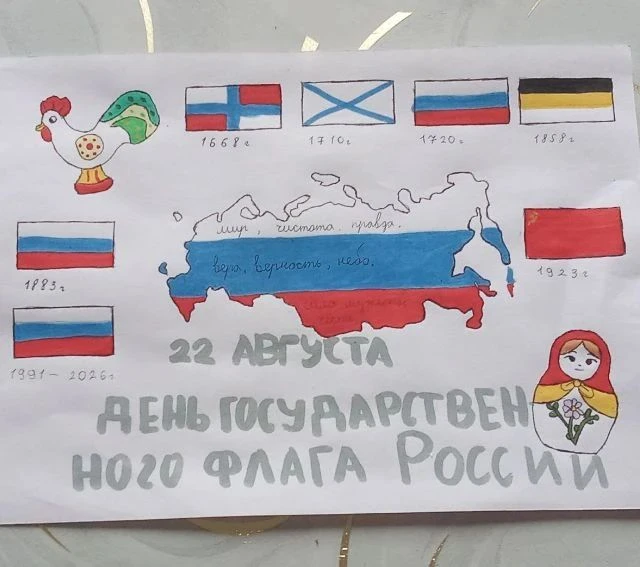 1668г 1710г 1720г 1858г
мир, чистота, правда.
вера, верность, небо.
1883г
1923г
сила мужество
1991 - 2026г
22 АВГУСТА
ДЕНЬ ГОСУДАРСТВЕН-
НОГО ФЛАГА РОССИИ